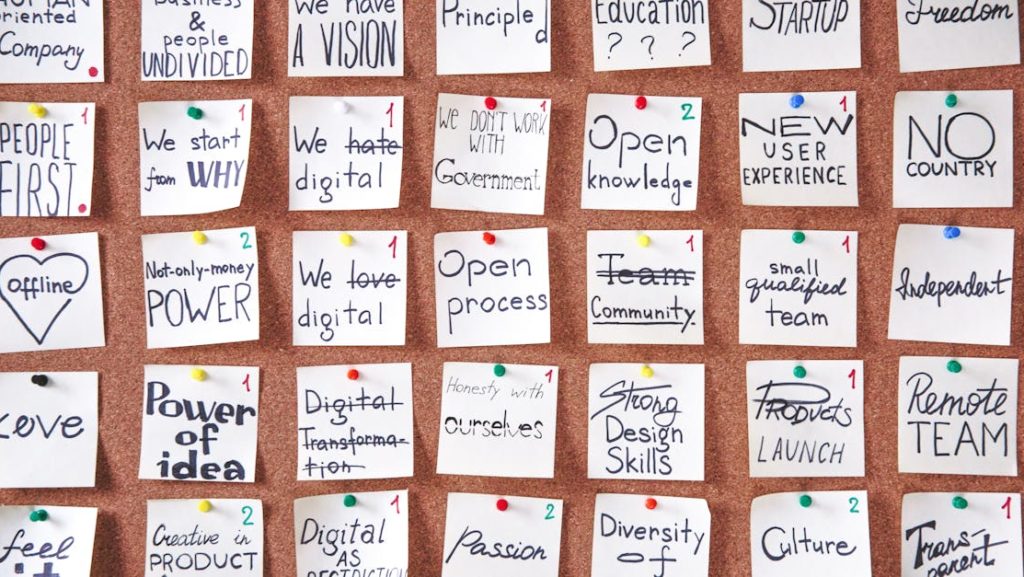 oriented
Company
business
&
people
UNDIVIDED
We have
A VISION
Principled
Education
? ? ?
STARTUP
Freedom
1
PEOPLE
FIRST.
1
We start
from WHY
1
We hate
digital
1
We DON'T WORK
WITH
Government
2
Open
knowledge
1
NEW
USER
EXPERIENCE
NO
COUNTRY
offline
2
Not-only-money
POWER
1
We love
digital
Open
process
1
Team
Community.
1
small
qualified
team
Independent
Love
1
Power
of
idea
Digital
Transforma-
tion
1
Honesty with
ourselves
Strong
Design
Skills
1
Products
LAUNCH
Remote
TEAM
feel
2
Creative in
PRODUCT
1
Digital
AS
2
Passion
Diversity
of
2
Culture
1
Trans-
parent